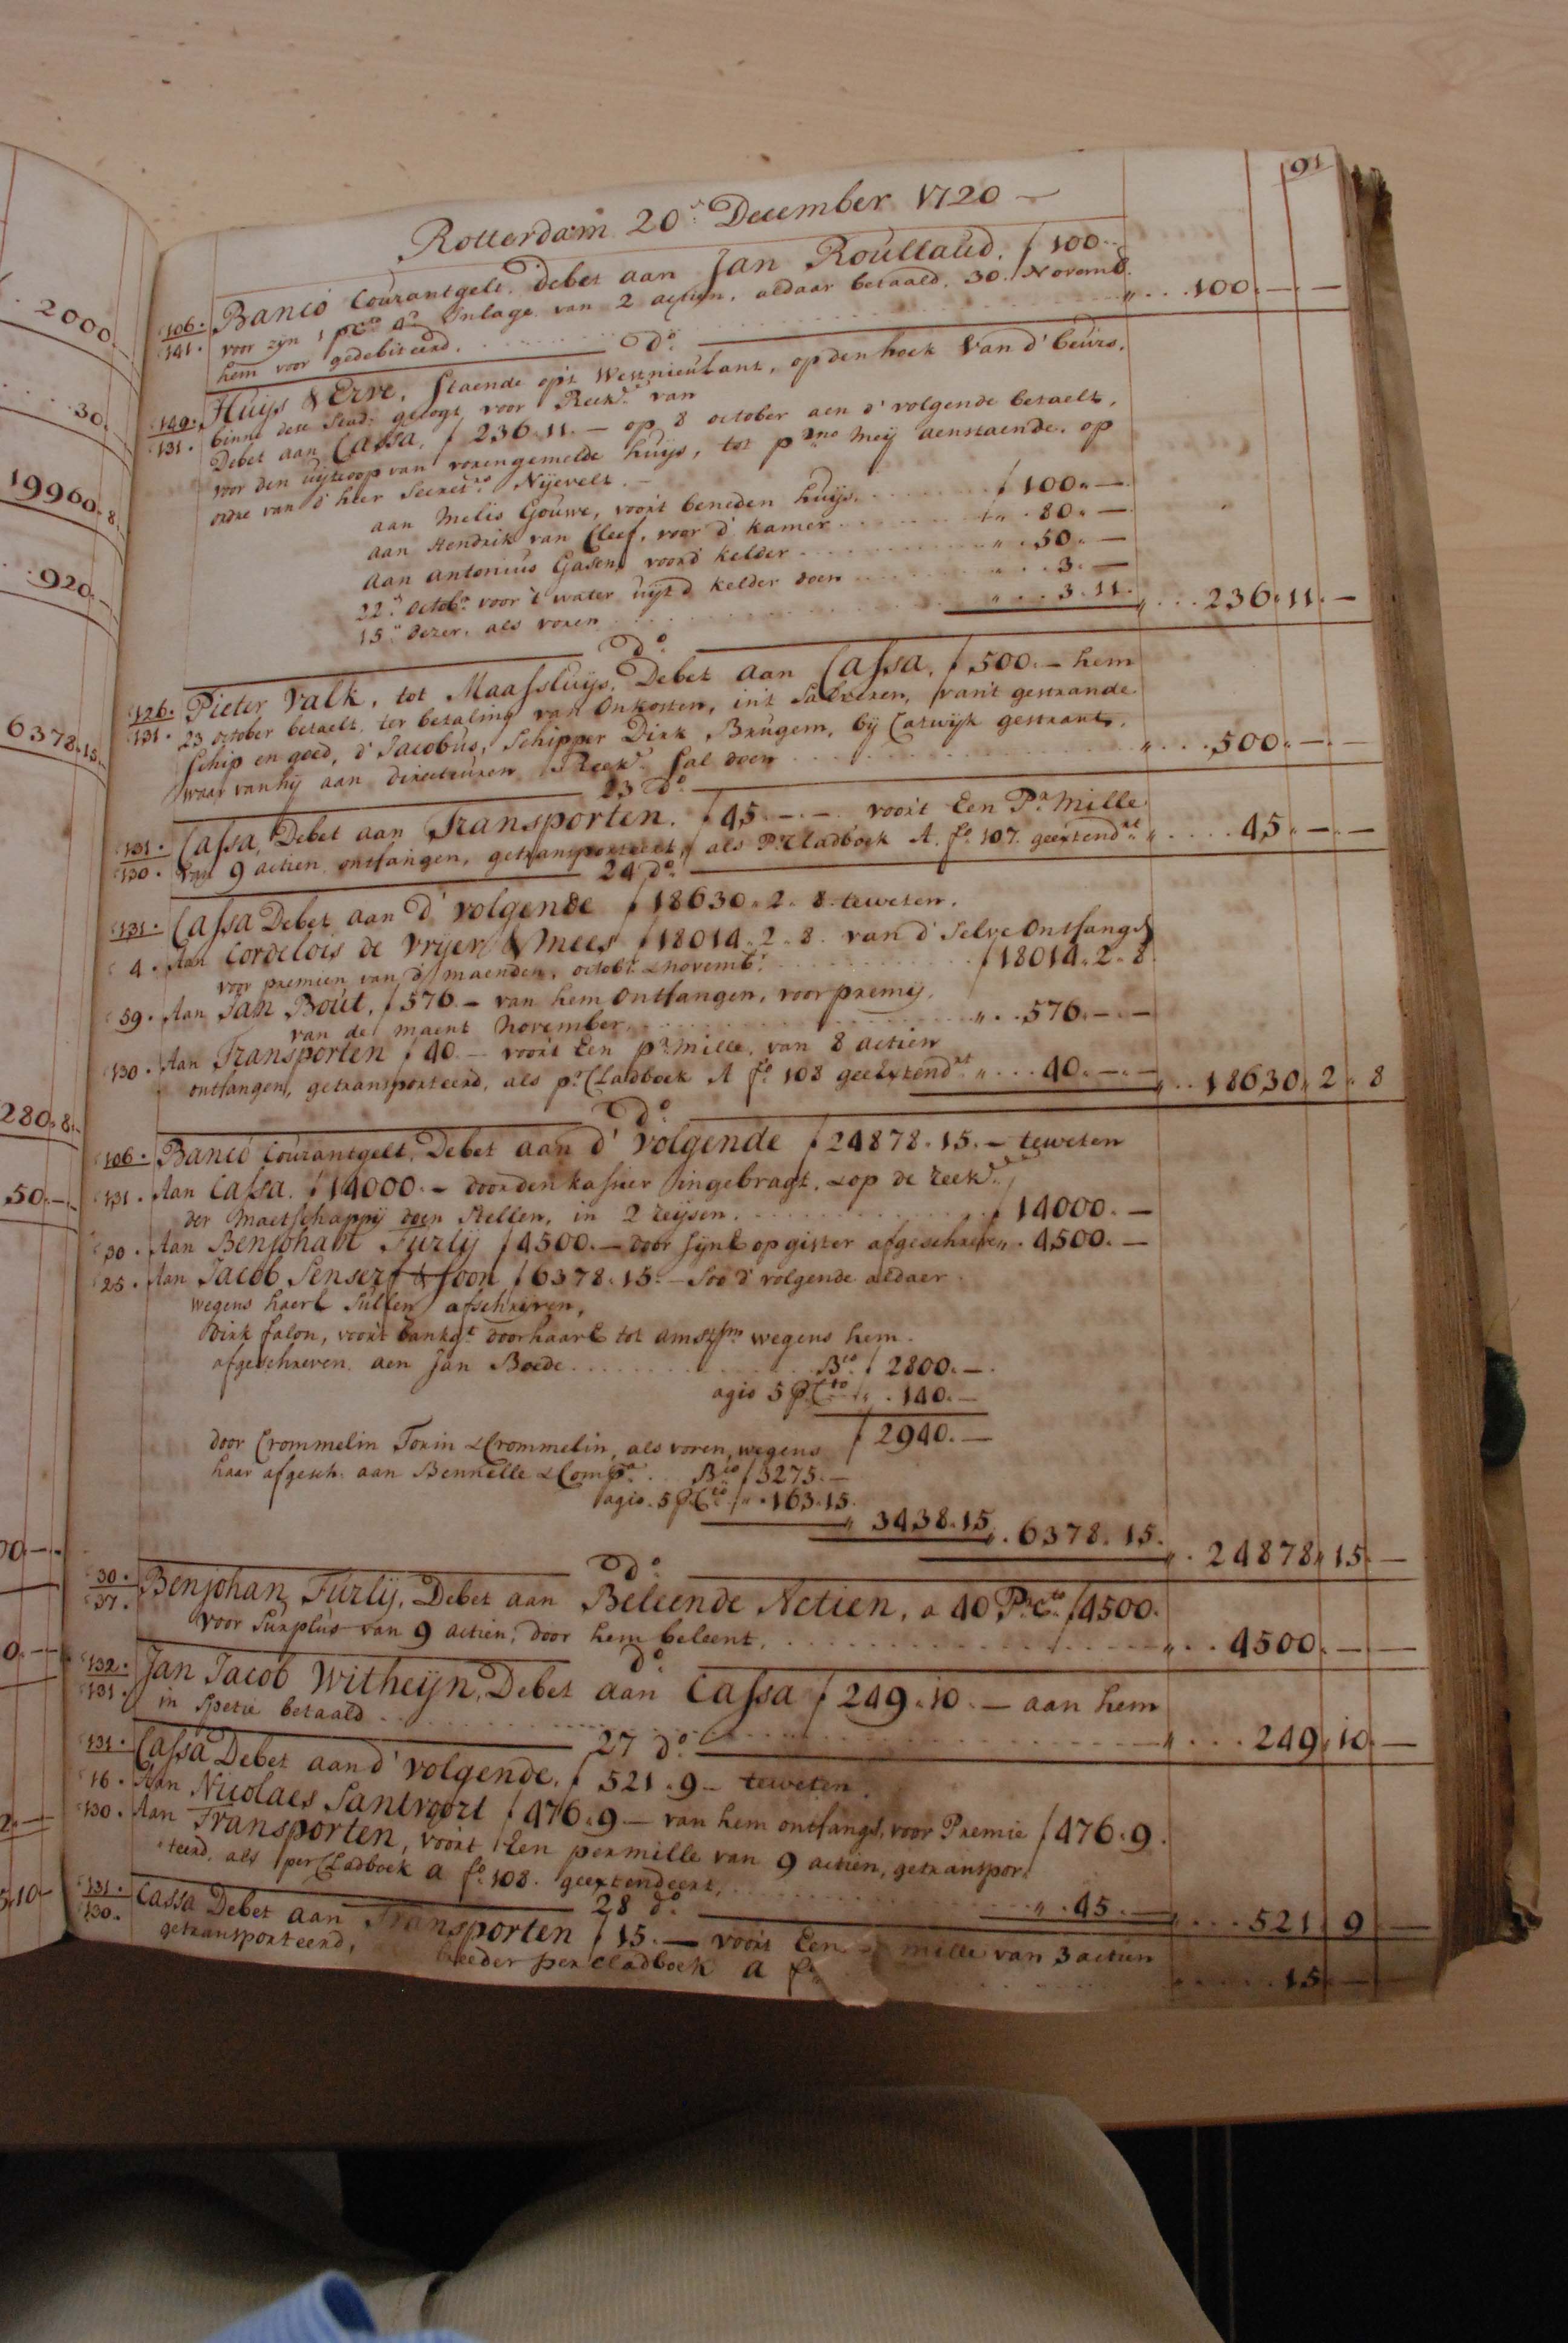 2000.-
30.
19960.8.
920.-
6378.15.
280.8.
50.-
91
Rotterdam 20.n December 1720 —
106. Banco Courantgelt, Debet aan Jan Roullaud, f 100.-
141. voor zijn 1 pCto Inlage van 2 actien, aldaar betaald, 30. Novemb.
hem voor gedebiteerd. „ 100.-.-
do.
140. Huijs & Erve, staende op't Westnieulant, op den hoek van d' beurs,
131. binne dese Stad; gecogt voor Reekg. van
Debet aan Cassa, f 236.11.- op 8 october aen d' volgende betaelt,
voor den uijtcoop van vorengemelde huijs, tot pmo Meij aenstaende, op
ordre van d' heer Secrets. Nijevelt. -
aan Melis Gouwe, voor't beneden huijs. f 100.-
aan Hendrik van Cleef, voor d' kamer „ 80.-
aan Antonius Gasens voor d' kelder „ 50.-
22.n Octob.r voor 't water uijt d' kelder doen „ 3.-
15.n dezer, als voren „ 3.11. „ 236.11.-
do.
126. Pieter Valk, tot Maassluijs, Debet aan Cassa, f 500.- hem
131. 23 october betaelt, ter betaling van Onkosten, in't Salveren, van't gestrande
schip en goed, d' Jacobus, Schipper Dirk Brugem, bij Catwijk gestrant,
waar van hij aan directeuren Reekg. sal doen „ 500.-.-
23 do.
131. Cassa, Debet aan Transporten, f 45.-.- voor't Een Pr. Mille
130. van 9 actien ontfangen, getransporteert, als Pr. Cladboek A. fo. 107. geextendt. „ 45.-.-
24 do.
131. Cassa Debet aan d' volgende f 18630.2.8. teweten.
4. Aan Cordelois de Vrijer & Mees f 18014.2.8. van d' Selve Ontfangs
voor premien van d' maenden, octobr. & novembr. f 18014.2.8.
59. Aan Jan Bout, f 576.- van hem Ontfangen, voor premij,
van de maent November „ 576.-.-
130. Aan Transporten f 40.- voor't Een pr. mille, van 8 actien
ontfangen, getransporteerd, als pr. Cladboek A fo. 108 geextendt. „ 40.-.- „ 18630.2.8
do.
106. Banco Courantgelt, Debet aan d' volgende f 24878.15.- teweten
131. Aan Cassa. f 14000.- door den kassier ingebragt, & op de reekg.
der Maetschappij doen stellen, in 2 reijsen. f 14000.-
30. Aan Benjohan Furlij f 4500.- door sijnE op gister afgeschreven. 4500.-
25. Aan Jacob Senserf & Soon f 6378.15.- Soo d' volgende aldaer
wegens haerE Sullen afschrijven,
Dirk Salon, voor't bankgt. door haarE tot Amstm. wegens hem.
afgeschreven, aen Jan Boede Bco. f 2800.-
agio 5 PCto „ 140.-
f 2940.-
door Crommelin Torin & Crommelin, als voren, wegens
haar afgesch. aan Bennelle & Compa. Bco f 3275.-
agio. 5 PCto „ 163.15.
„ 3438.15 „ 6378.15. „ 24878.15.-
do.
30. Benjohan Furlij, Debet aan Beleende Actien, a 40 Pr. Cto. f 4500.
37. voor Surplus van 9 actien, door hem beleent, „ 4500.-.-
do.
132. Jan Jacob Witheijn, Debet aan Cassa f 249.10.- aan hem
131. in Spetie betaald „ 249.10.-
27 do.
131. Cassa Debet aan d' volgende, f 521.9.- teweten.
16. Aan Nicolaes Santvoort f 476.9.- van hem ontfangs, voor Premie f 476.9.
130. Aan Transporten, voor't Een per mille van 9 actien, getranspor,
teerd, als per Cladboek A fo. 108. geextendeert, „ 45.- „ 521.9.-
28 do.
131. Cassa Debet aan Transporten f 15.- voor't Een mille van 3 actien
130. getransporteerd, breeder per cladboek A fo. 15.-